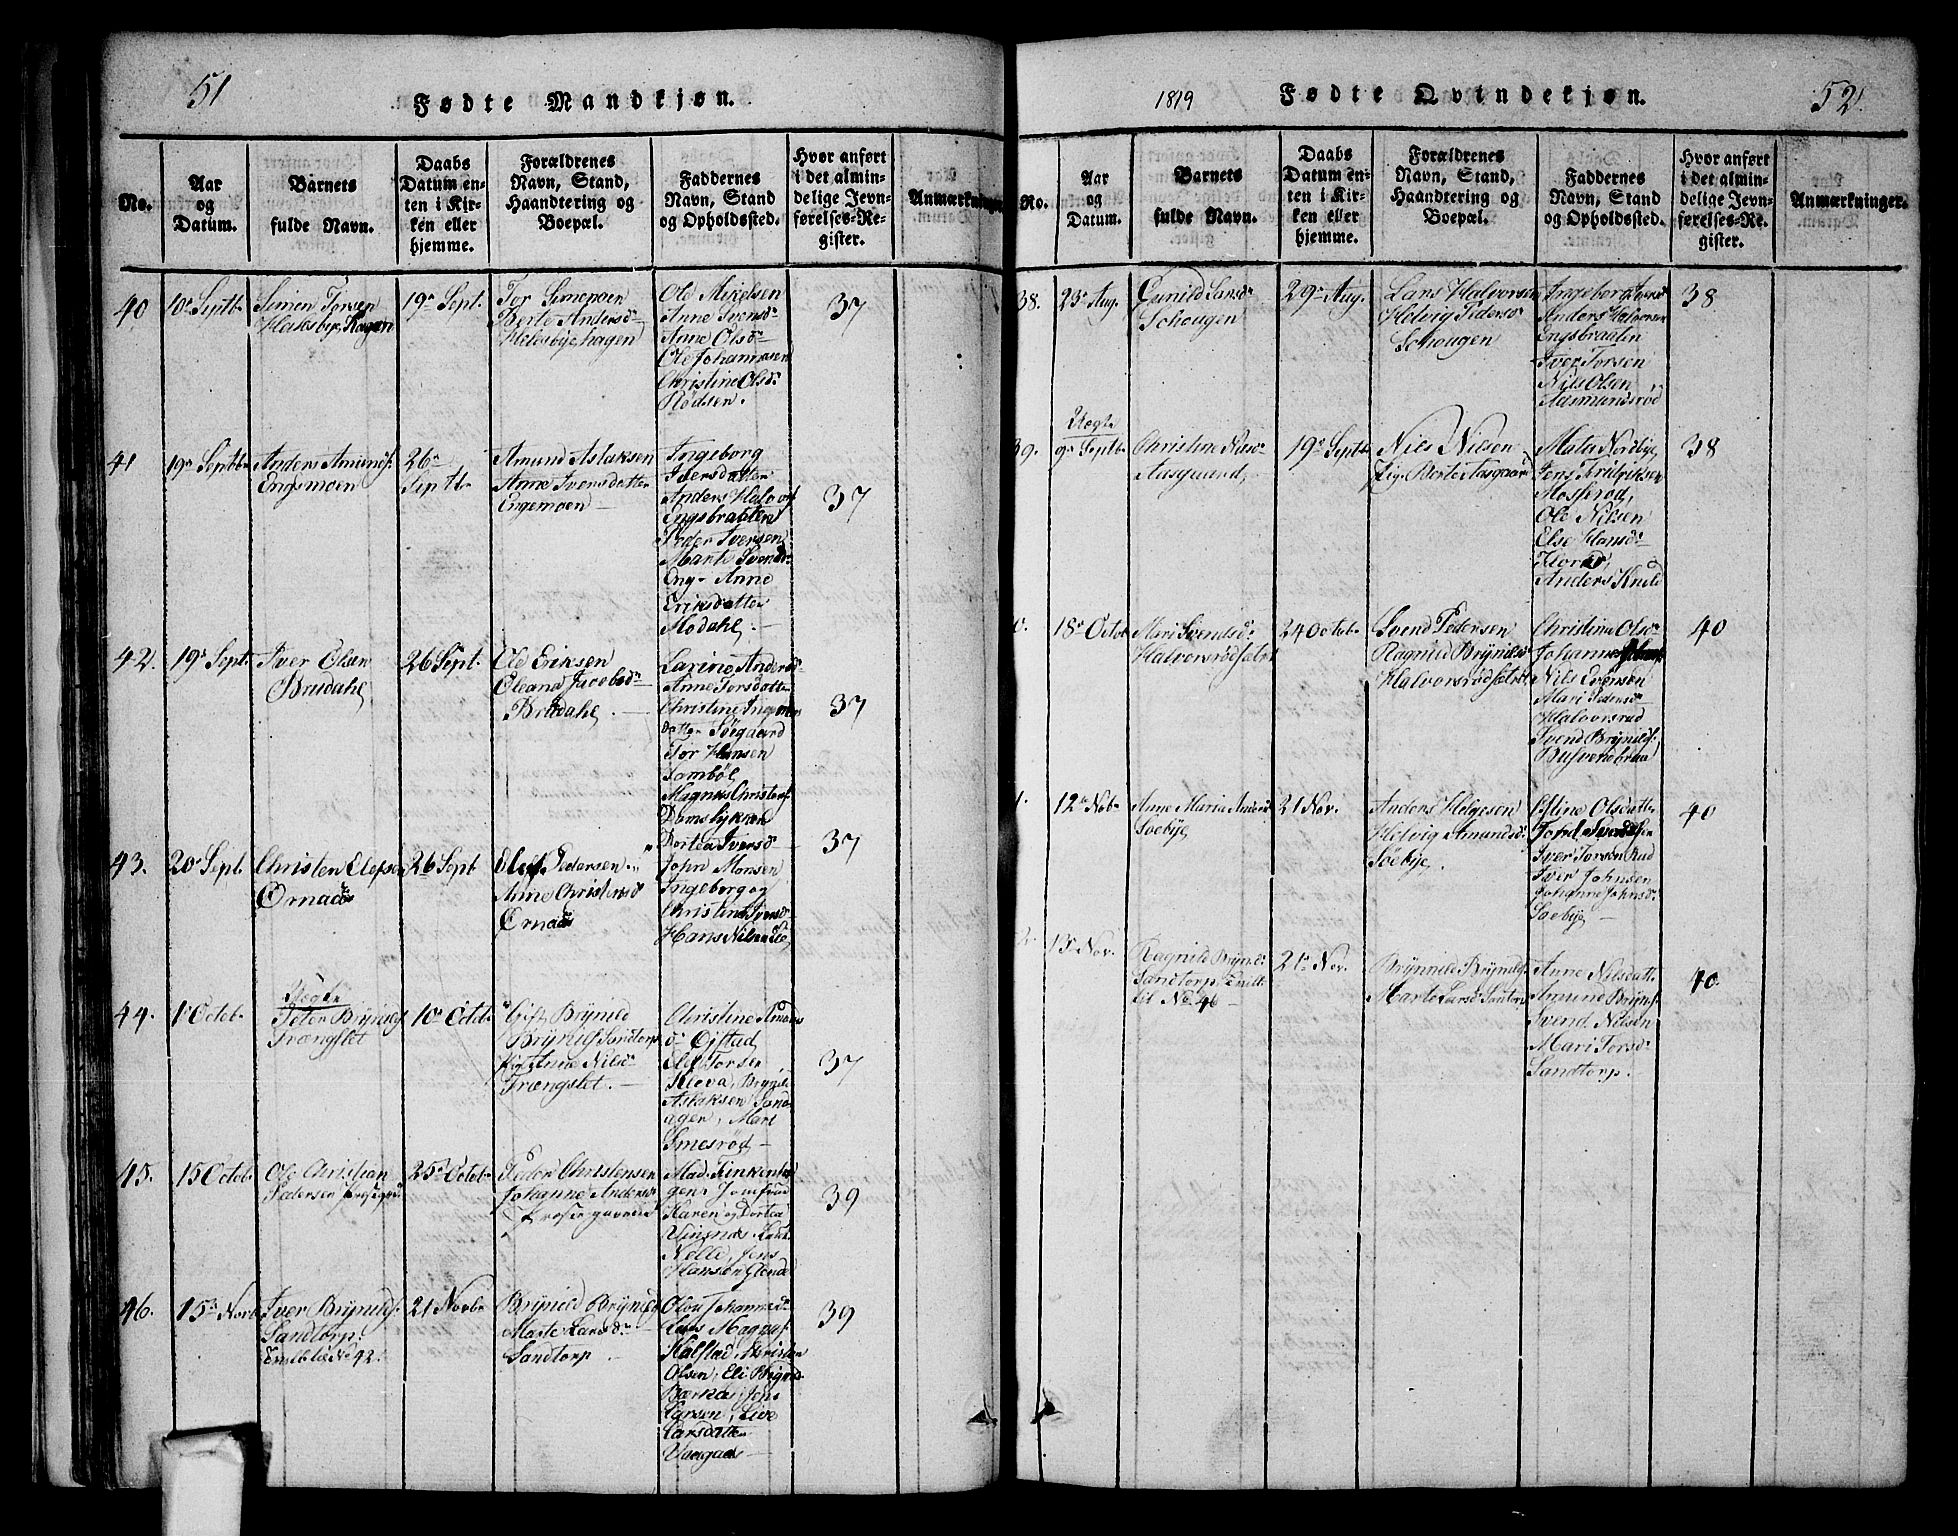 51
Fødte Mandkjøn.
No.
Aar
og
Datum.
Barnets
fulde Navn.
Daabs
Datum en-
ten i Kir-
ken eller
hjemme.
Forældrenes
Navn, Stand,
Haandtering og
Boepæl.
Faddernes
Navn, Stand
og Opholdssted.
Hvor anført
i det almin-
delige Jevn-
førelses-Re-
gister.
Anmærkninger
40
10 Septb
Simen Torsen
19 Sept.
Tor Simensen
Berte Andersd
Ole Mikelsen
Anne Svensd
Anne Olsd
Ole Johannesen
Christine Olsd
Rødsen.
37
41
19 Septb
Anders Amunds
Engemoen
26
Septb
Amund Aslaksen
Anne Svensdatter
Engemoen
Ingeborg
Iversdatter
Anders Halvors
Engsbraatten
Peder Iversen
Marte Svensd
Eng - Anne
Eriksdatter
Modahl
37
42.
19 Sept
Iver Olsen
Brudahl
26 Sept.
Ole Eriksen
Oleana Jacobsd
Brudahl
Larine Andersd
Anne Torsdatter
Christine
datter Søegaard
Tor Hansen
Tambøl
Magnus Christens
Damslykken
Dortea Iversd
37
43.
20 Sept
Christen Elefsen
Ornaas
26 Sept
Elef Pedersen
Anne Christensd
Ornaas
John Monsen
Ingeborg og
Christine Iversd
Hans Nilsen
37
44.
1 Octob
Uegte
Peter Brynilds
Trængslet
10 Octob
Gift Brynild
Brynils Sandtorp
Pig Anne Nilsd
Trængslet
Christine
Elef Torsen
Kløva, Brynild
Aslaksen Sand-
agen, Mari
Smesrød
37
45.
15 Octob
Ole Christian
Pedersen
25 Octob
Peder Christensen
Johanne Andersd
Mad. Finkenha
gen, Jomfrue
Karen og Dortea
Nelle, Jens
Hansen Glende
39
46.
15 Novb
Iver Brynilds
Sandtorp.
Tvilb. til No 42.
21 Novbr
Brynild Brynilds
Marte Larsd
Sandtorp
Olou Johannesd
Lars Magnus
Kalstad Christen
Olsen, Eli Brynils
Bærnæs, Jens
Larsen, Live
Larsdatter
1819
Fødte Qvindekjøn.
52
No.
Aar
og
Datum.
Barnets
fulde Navn.
Daabs
Datum en-
ten i Kir-
ken eller
hjemme.
Forældrenes
Navn, Stand,
Haandtering og
Boepæl.
Faddernes
Navn, Stand
og Opholdssted.
Hvor anført
i det almin-
delige Jevn-
førelses-Re-
gister.
Anmærkninger.
38.
23 Aug.
Gunild Larsd
Schougen
29 Aug.
Lars Halvorsen
Helvig Pedersd
Schougen
Ingeborg Torsd
Anders Halvorsen
Engsbraaten
Iver Torsen
Nils Olsen
Aasmundsrød
38
39.
Uegte
9 Septb
Christine Nilsd
Aasgaard
19 Septb
Nils Nilsen
Pige Berte Aasgaard
Mats Nordbye
Jens Fridriksen
Mosserød,
Ole Nilsen
Else Hansd
Anders Knild
38
0.
18 Octob
Mari Svendsd
Halvorsrødsætr
24 Octob
Svend Pedersen
Ragnild Brynilsd
Halvorsrødsætr
Christine Olsd
Johannes
Nils Evensen
Mari Pedersd
Halvorsrud
Svend Brynilds
40
1.
12 Nob
Anne Maria Andersd
Soebye
21 Nov.
Anders Helgesen
Helvig Amundsd
Söebye
Stine Olsdatter
Iver Torsen Rud
Iver Johnsen
Johanne Johnsd
Soebye
40
2.
15 Nov.
Ragnild Brynilds
Sandtorp, Tvill.
til No 46
21 Nov.
Brynnild Brynilds
Marte Larsd Sandtorp
Anne Nilsdatt
Amund Brynils
Svend Nilsen
Mari Torsd
Sandtorp.
40